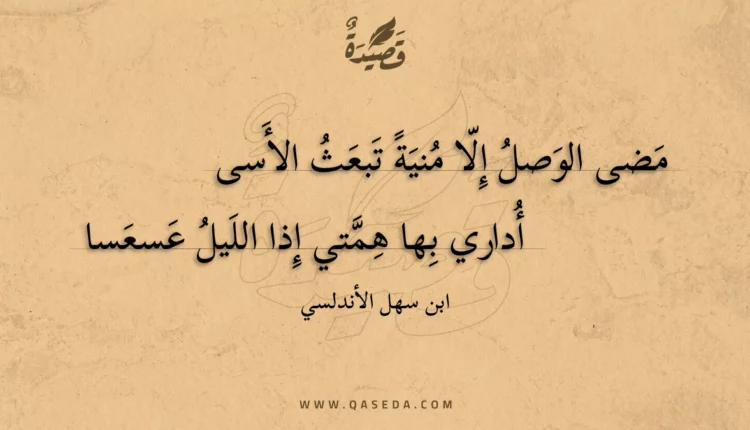 قَصِيدَةٌ
مَضى الوَصلُ إِلّا مُنيَةً تَبعَثُ الأَسى
أُداري بِها هِمَّتي إِذا اللَيلُ عَسعَسا
ابن سهل الأندلسي
WWW.QASEDA.COM